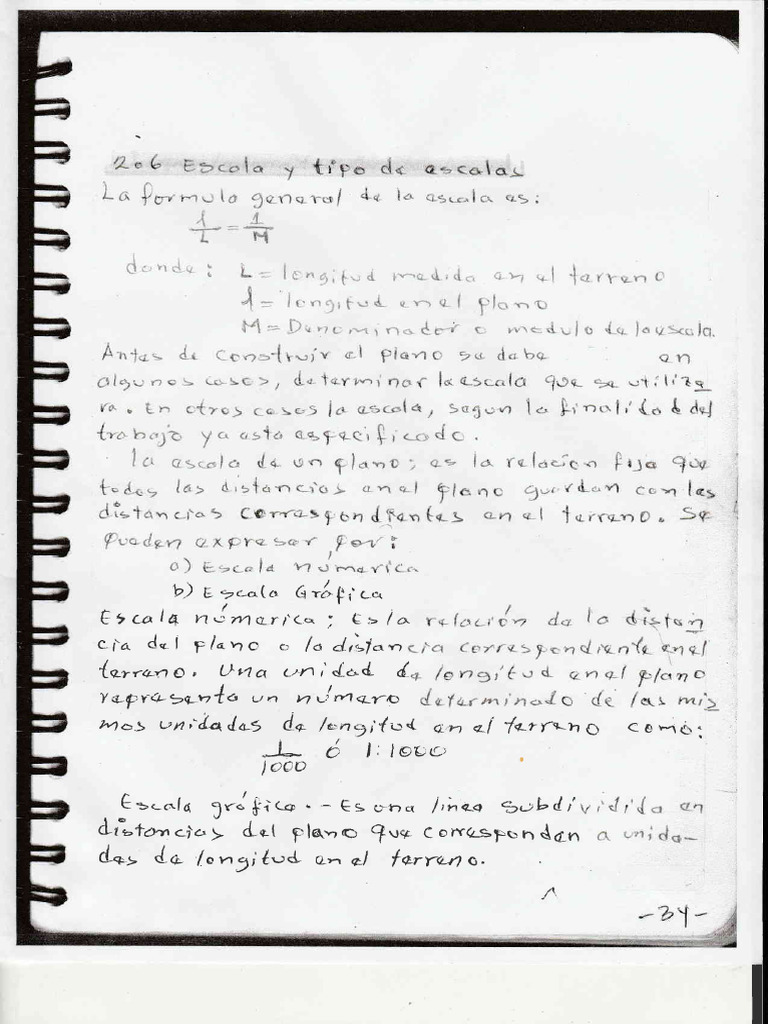 2.6 Escala y tipo de escalas
La formula general de la escala es:
l/L = 1/M
donde: L = longitud medida en el terreno
l = longitud en el plano
M = Denominador o modulo de la escala.
Antes de construir el plano se debe en
algunos casos, determinar la escala que se utiliza
ra. En otros casos la escala, segun la finalidad del
trabajo ya esta especificado.
la escala de un plano; es la relacion fija que
todas las distancias en el plano guardan con las
distancias correspondientes en el terreno. Se
pueden expresar por:
a) Escala númerica
b) Escala Gráfica
Escala númerica; Es la relación de la distan
cia del plano a la distancia correspondiente en el
terreno. Una unidad de longitud en el plano
representa un número determinado de las mis
mas unidades de longitud en el terreno como:
1/1000 ó 1:1000
Escala gráfica.- Es una linea subdividida en
distancias del plano que corresponden a unida-
des de longitud en el terreno.
-34-